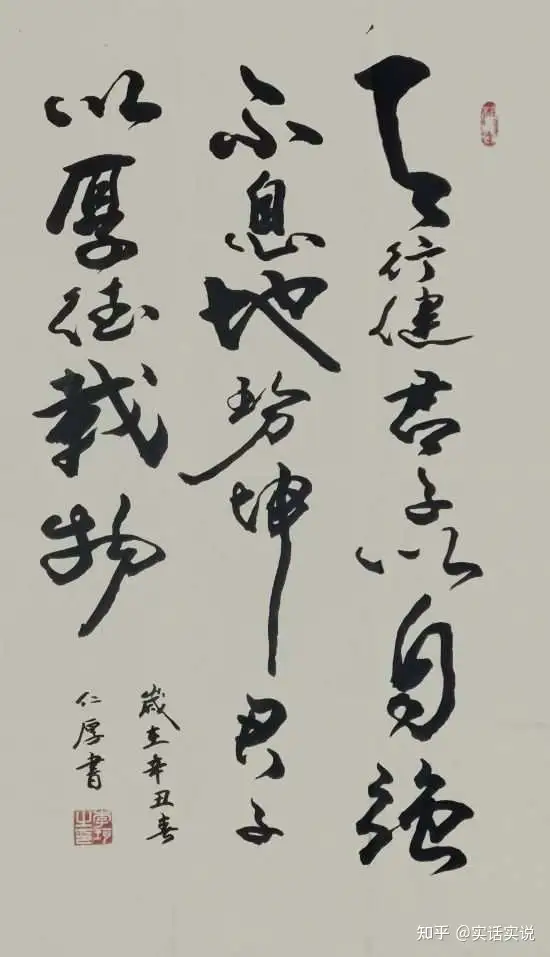 天行健君子以自强
不息地势坤君子
以厚德载物
歲在辛丑春
仁厚書
知乎 @实话实说